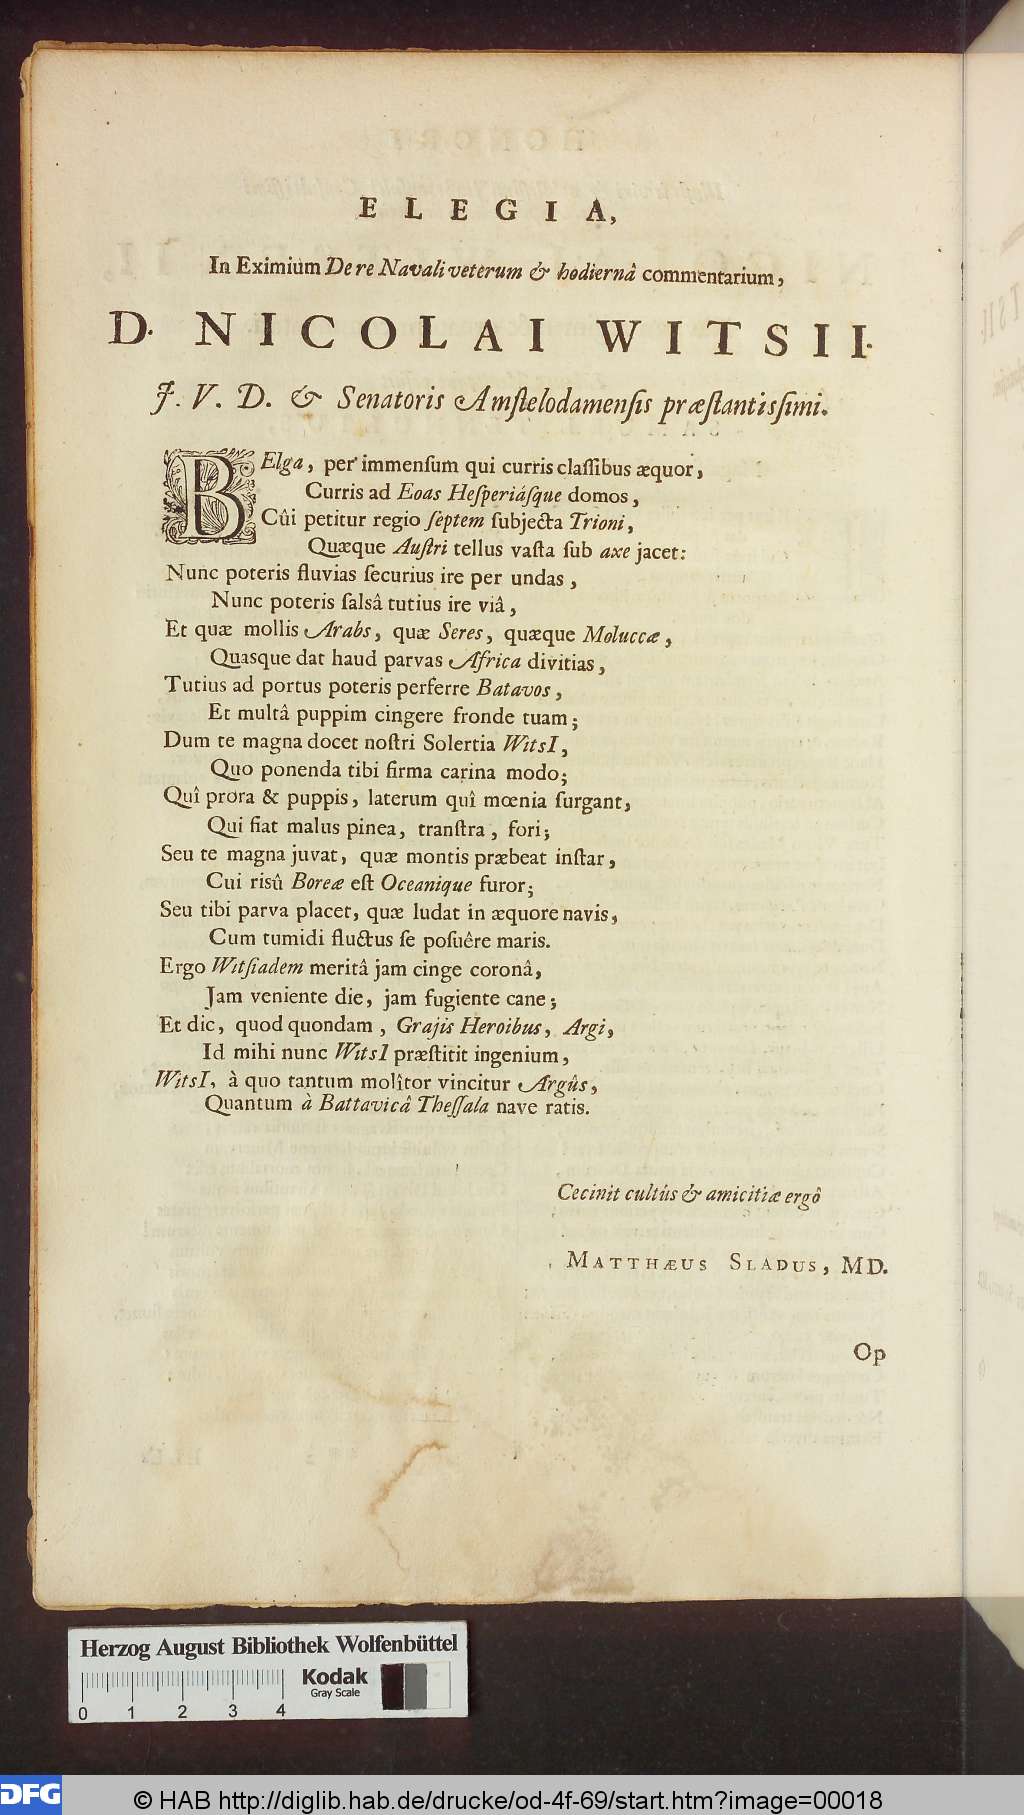 ELEGIA,
In Eximium De re Navali veterum & hodiernâ commentarium,
D. NICOLAI WITSII.
J. V. D. & Senatoris Amſtelodamenſis præſtantiſſimi.
BElga, per immenſum qui curris claſſibus æquor,
Curris ad Eoas Heſperiáſque domos,
Cûi petitur regio ſeptem ſubjecta Trioni,
Quæque Auſtri tellus vaſta ſub axe jacet:
Nunc poteris fluvias ſecurius ire per undas,
Nunc poteris ſalsâ tutius ire viâ,
Et quæ mollis Arabs, quæ Seres, quæque Moluccæ,
Quasque dat haud parvas Africa divitias,
Tutius ad portus poteris perferre Batavos,
Et multâ puppim cingere fronde tuam;
Dum te magna docet noſtri Solertia WitsI,
Quo ponenda tibi firma carina modo;
Quî prora & puppis, laterum quî mœnia ſurgant,
Qui fiat malus pinea, tranſtra, fori;
Seu te magna juvat, quæ montis præbeat inſtar,
Cui risû Boreæ eſt Oceanique furor;
Seu tibi parva placet, quæ ludat in æquore navis,
Cum tumidi fluctus ſe poſuêre maris.
Ergo Witſiadem meritâ jam cinge coronâ,
Jam veniente die, jam fugiente cane;
Et dic, quod quondam, Grajis Heroibus, Argi,
Id mihi nunc WitsI præſtitit ingenium,
WitsI, à quo tantum molîtor vincitur Argûs,
Quantum à Battavicâ Theſſala nave ratis.
Cecinit cultûs & amicitiæ ergô
MATTHÆUS SLADUS, MD.
Op
Herzog August Bibliothek Wolfenbüttel
Kodak
Gray Scale
0 1 2 3 4
DFG © HAB http://diglib.hab.de/drucke/od-4f-69/start.htm?image=00018